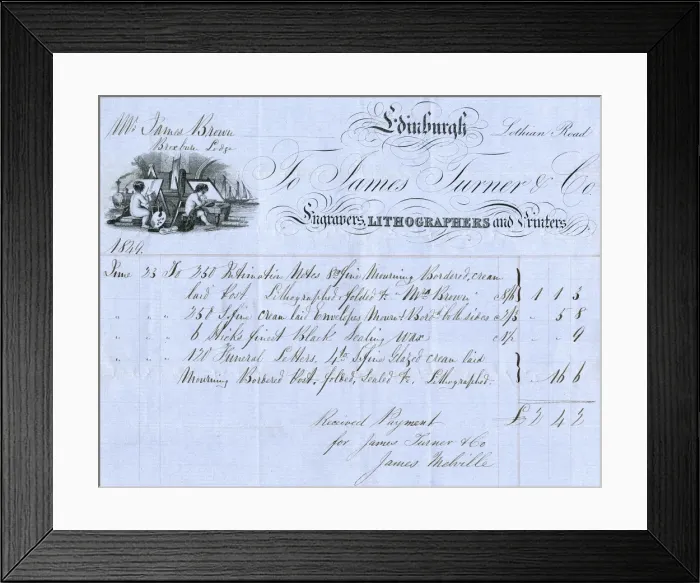 Mr. James Brown
Edinburgh
Lothian Road
To James Turner & Co
Engravers, LITHOGRAPHERS and Printers
1849.
June 23 To 250 Intimation Notes 8vo fine Mourning Bordered, cream
laid Post Lithographed, folded &c "Mrs Brown" 1 1 3
" " " 250 S.fine cream laid Envelopes Mourng Bord. both sides - 5 8
" " " 6 Sticks finest Black Sealing Wax - - 9
" " " 120 Funeral Letters. 4to S.fine Glazed cream laid
Mourning Bordered Post, folded, Sealed &c. Lithographed. - 16 6
£2 4 2
Received Payment
for James Turner & Co
James Melville